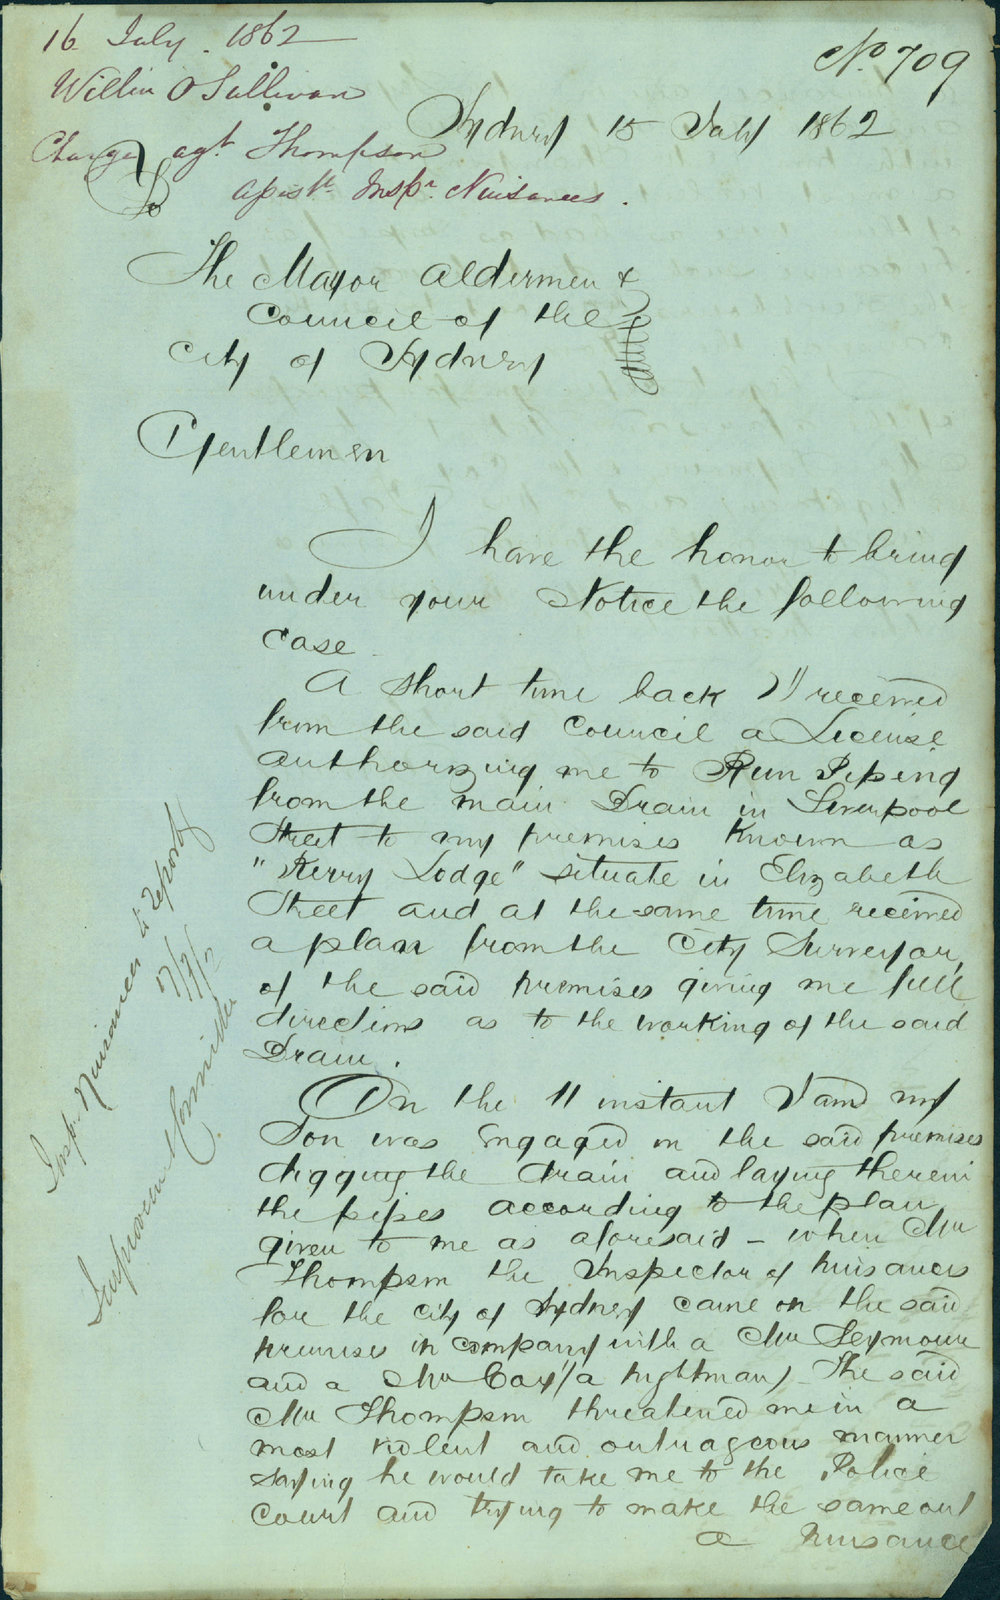 16 July. 1862
No. 709
Willm O Sullivan
Sydney 15 July 1862
Charges agt. Thompson
assist. Inspr. Nuisances.
To
The Mayor Aldermen &
Council of the
City of Sydney
Gentlemen
I have the honor to bring
under your Notice the following
case.
A short time back I received
from the said Council a License
authorizing me to Run Piping
from the main Drain in Liverpool
Street to my premises known as
"Kerry Lodge" situate in Elizabeth
Street and at the same time received
a plan from the City Surveyor,
of the said premises giving me full
directions as to the working of the said
Drain.
On the 11 instant I and my
Son was Engaged on the said premises
digging the drain and laying therein
the pipes according to the plan
given to me as aforesaid - when Mr
Thompson the Inspector of nuisances
for the city of Sydney came on the said
premises in company with a Mr Seymour
and a Mr Cox (a nightman) - The said
Mr Thompson threatened me in a
most violent and outrageous manner
saying he would take me to the Police
Court and trying to make the same out
a nuisance
Inspr. Nuisances to report
17/7/62
Improvement Committee